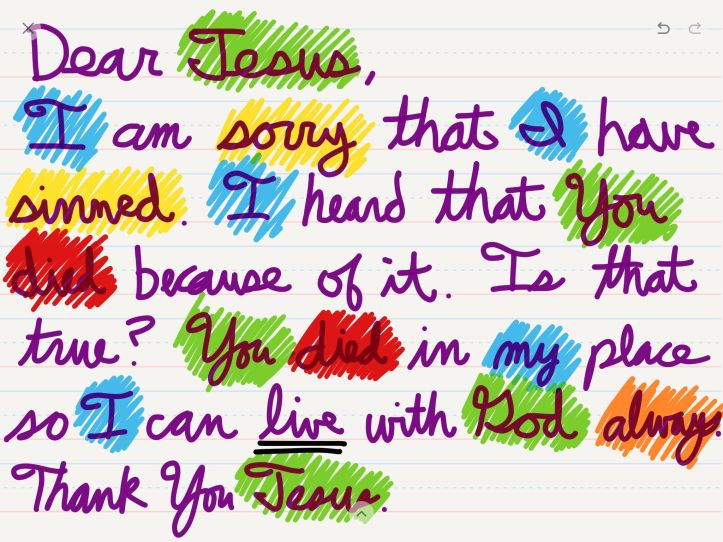 Dear Jesus,
I am sorry that I have
sinned. I heard that You
died because of it. Is that
true? You died in my place
so I can live with God always.
Thank You Jesus.